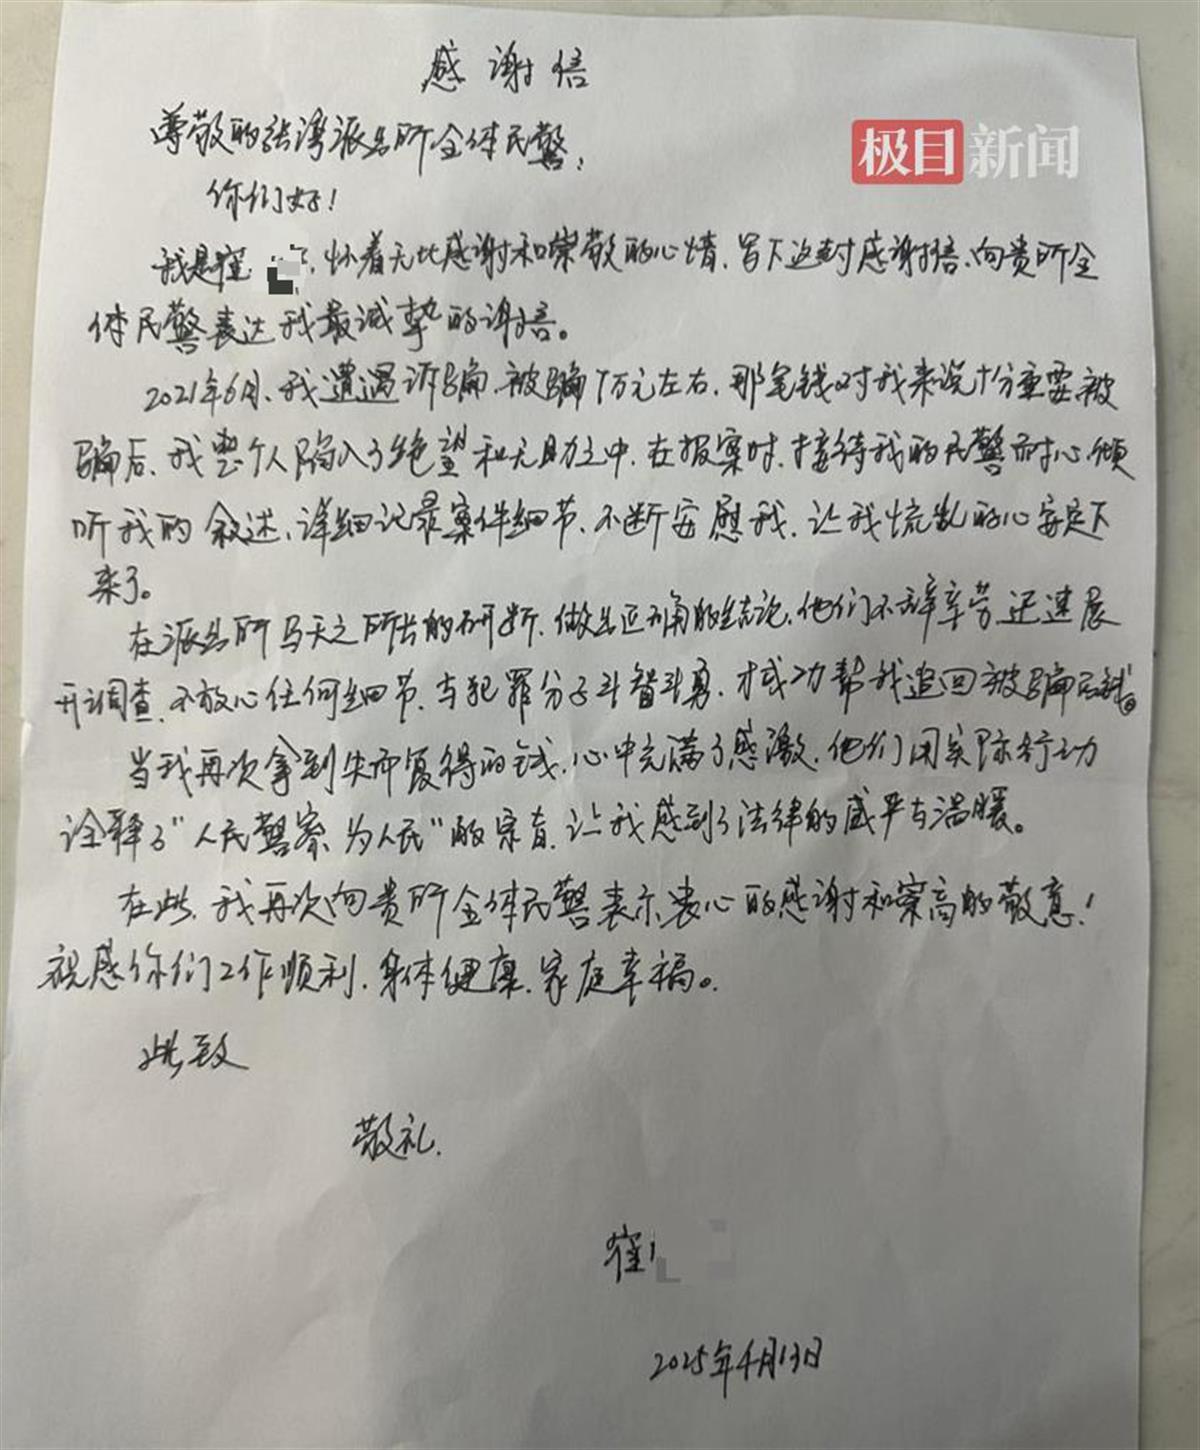 感谢信
极目新闻
尊敬的张湾派出所全体民警：
你们好！
我是崔 ，怀着无比感谢和崇敬的心情，写下这封感谢信、向贵所全
体民警表达我最诚挚的谢信。
2021年6月、我遭遇诈骗、被骗 万元左右，那笔钱对我来说十分重要被
骗后、我整个人陷入了绝望和无助之中，在报案时，接待我的民警耐心倾
听我的叙述、详细记录案件细节、不断安慰我，让我慌乱的心安定下
来了。
在派出所马天之所长的研断，做出正确的结论，他们不辞辛劳、迅速展
开调查、不放心任何细节、与犯罪分子斗智斗勇，才成功帮我追回被骗 钱。
当我再次拿到失而复得的钱、心中充满了感激，他们用实际行动
诠释了“人民警察为人民”的宗旨，让我感到了法律的威严与温暖。
在此，我再次向贵所全体民警表示衷心的感谢和崇高的敬意！
祝感你们工作顺利，身体健康，家庭幸福。
此致
敬礼.
崔
2025年4月13日